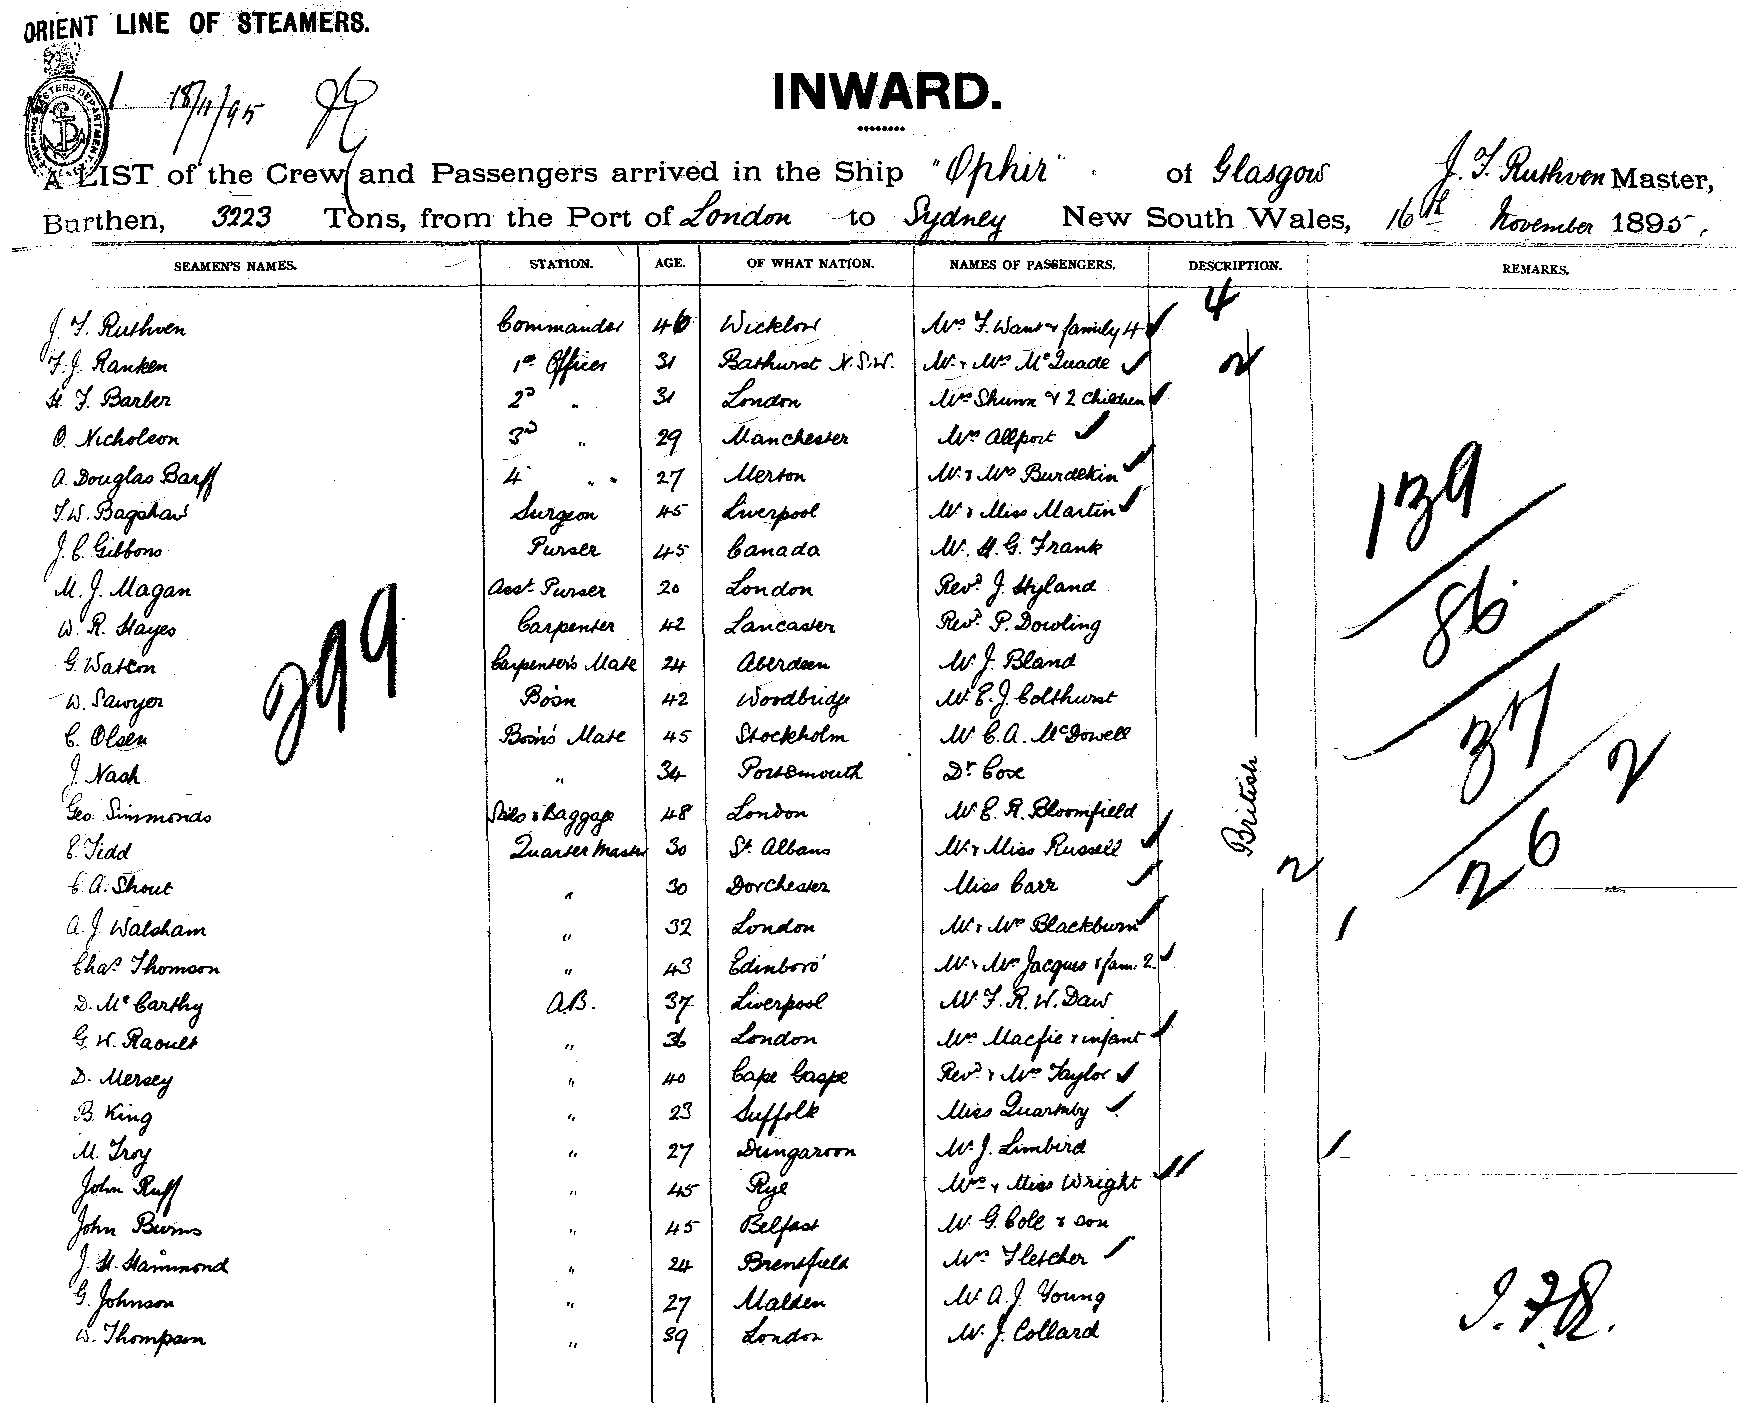 ORIENT LINE OF STEAMERS.
18/11/95
INWARD.
A LIST of the Crew and Passengers arrived in the Ship "Ophir" of Glasgow J. F. Ruthven Master,
Burthen, 3223 Tons, from the Port of London to Sydney New South Wales, 16th November 1895.
SEAMEN'S NAMES. STATION. AGE. OF WHAT NATION. NAMES OF PASSENGERS. DESCRIPTION. REMARKS.
4
J. F. Ruthven Commander 46 Wicklow Mrs F. Want & family 4
F. J. Ranken 1st Officer 31 Bathurst N.S.W. Mr & Mrs McQuade 2
H. F. Barber 2d " 31 London Mrs Shunn & 2 Children
O. Nicholson 3d " 29 Manchester Mrs Allport
A. Douglas Barff 4 " " 27 Merton Mr & Mrs Burdekin
F. W. Bagshaw Surgeon 45 Liverpool Mr & Miss Martin 139
J. C. Gibbons Purser 45 Canada Mr. H. G. Frank
M. J. Magan Asst. Purser 20 London Revd J. Hyland
W. R. Hayes Carpenter 42 Lancaster Revd. P. Dowling 86
G. Watson Carpenter's Mate 24 Aberdeen Mr J. Bland
299
W. Sawyer Bosn 42 Woodbridge Mr E. J. Colthurst
C. Olsen Bosn's Mate 45 Stockholm Mr C. A. McDowell 37
J. Nash " 34 Portsmouth Dr Cox 2
Geo. Simmonds Sails & Baggage 48 London Mr E. R. Bloomfield British
E. Tidd Quarter Master 30 St. Albans Mr & Miss Russell
C. A. Shout " 30 Dorchester Miss Carr 2 26
A. J. Walsham " 32 London Mr & Mrs Blackburn
Chas. Thomson " 43 Edinboro' Mr & Mrs Jacques & fam: 2.
D. McCarthy A.B. 37 Liverpool Mr F. R. W. Daw
G. W. Raoult " 36 London Mrs Macfie & infant
D. Mersey " 40 Cape Gaspe Revd & Mrs Taylor
B. King " 23 Suffolk Miss Quarmby
M. Troy " 27 Dungarvon Mr J. Limbird
John Ruff " 45 Rye Mrs & Miss Wright
John Burns " 45 Belfast Mr G. Cole & son
J. H. Hammond " 24 Brentfield Mrs Fletcher
G. Johnson " 27 Malden Mr A. J. Young
W. Thompson " 39 London Mr J. Collard